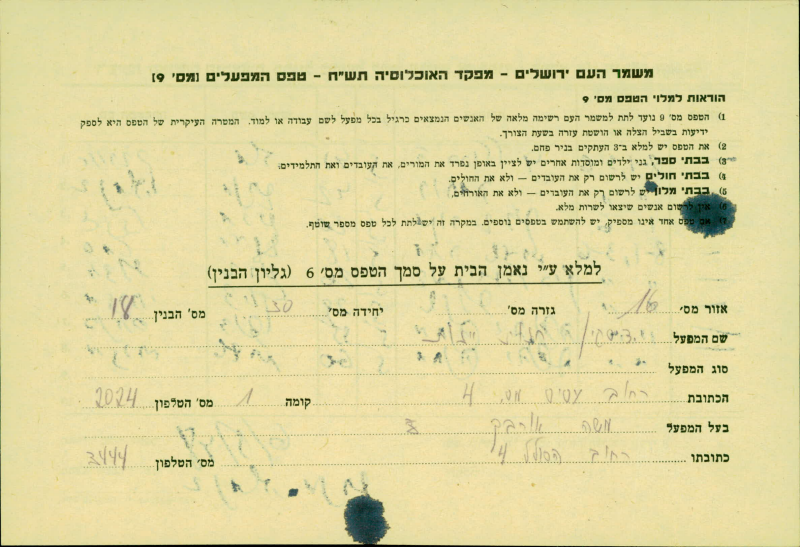 משמר העם ירושלים – מפקד האוכלוסיה תש"ח – טפס המפעלים [מס' 9]
הוראות למלוי הטפס מס' 9
1) הטפס מס' 9 נועד לתת למשמר העם רשימה מלאה של האנשים הנמצאים כרגיל בכל מפעל לשם עבודה או למוד. המטרה העיקרית של הטפס היא לספק
ידיעות בשביל הצלה או הושטת עזרה בשעת הצורך.
2) את הטפס יש למלא ב־3 העתקים בניר פחם.
3) בבתי ספר, גני ילדים ומוסדות אחרים יש לציין באופן נפרד את המורים, את העובדים ואת התלמידים.
4) בבתי חולים יש לרשום רק את העובדים — ולא את החולים.
5) בבתי מלון יש לרשום רק את העובדים — ולא את האורחים.
6) אין לרשום אנשים שיצאו לשרות מלא.
7) אם טפס אחד אינו מספיק, יש להשתמש בטפסים נוספים. במקרה זה יש לתת לכל טפס מספר שוטף.
למלא ע"י נאמן הבית על סמך הטפס מס' 6 (גליון הבנין)
אזור מס' 16 גזרה מס' יחידה מס' 30 מס' הבנין 18
שם המפעל
סוג המפעל
הכתובת רחוב מס. 4 קומה 1 מס' הטלפון 2024
בעל המפעל משה
כתובתו רחוב הסולל 4 מס' הטלפון 3444